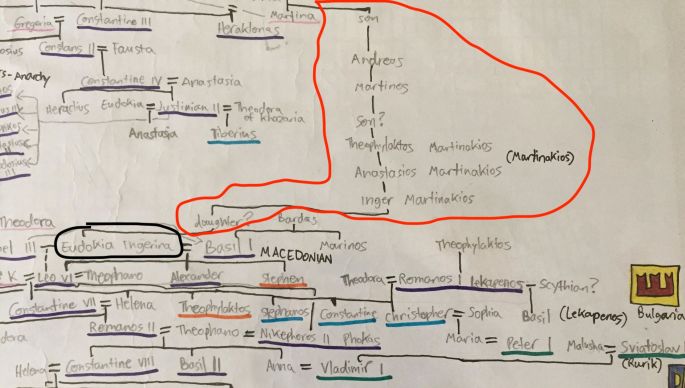 Gregoria = Constantine III
Martina
Heraklonas
son
Constans II = Fausta
Andreas
Martinos
Constantine IV = Anastasia
Heraclius
Eudokia = Justinian II = Theodora of Khazaria
Anastasia
Tiberius
son?
Theophylaktos Martinakios
(Martinakios)
Anastasios Martinakios
Inger Martinakios
Theodora
daughter?
Bardas
Eudokia Ingerina = Basil I
MACEDONIAN
Marinos
Theophylaktos
Leo VI = Theophano
Alexander
Stephen
Theodora = Romanos Lekapenos - Scythian?
Constantine VII = Helena
Theophylaktos
Stephanos
Constantine
Christopher = Sophia
Basil
(Lekapenos)
Bulgaria
Romanos II = Theophano = Nikephoros II Phokas
Maria = Peter I
Malusha = Sviatoslav
(Rurik)
Helena = Constantine VIII
Basil II
Anna = Vladimir I